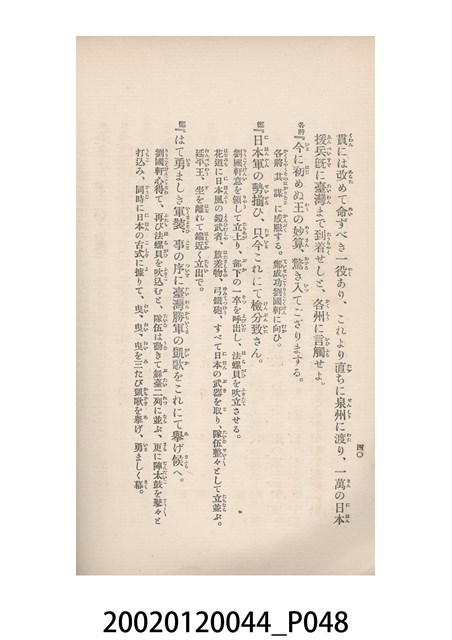 四〇
貫には改めて命ずべき一役あり、これより直ちに泉州に渡り、一萬の日本
援兵既に臺灣まで到着せしと、各州に言觸せよ。
各將『今に初めぬ王の妙算、驚き入てござりまする。
各將共謀に感服する。鄭成功劉國軒に向ひ。
鄭『日本軍の勢揃ひ、只今これにて檢分致さん。
劉國軒意を領して立上り、部下の一卒を呼出し、法螺貝を吹立させる。
花道に日本風の鎧武者、旗差物、弓鐵砲、すべて日本の武器を取り、隊伍整々として立並ぶ。
延平王、坐を離れて緣近く立出で。
鄭『はて勇ましき軍裝、事の序に臺灣勝軍の凱歌をこれにて擧げ候へ。
劉國軒心得て、再び法螺貝を吹込むと、隊伍は動きて舞臺二列に並ぶ、更に陣太鼓を鼕々と
打込み、同時に日本の古式に據りて、曳、曳、曳を三たび凱歌を擧げ、勇ましく幕。
20020120044_P048